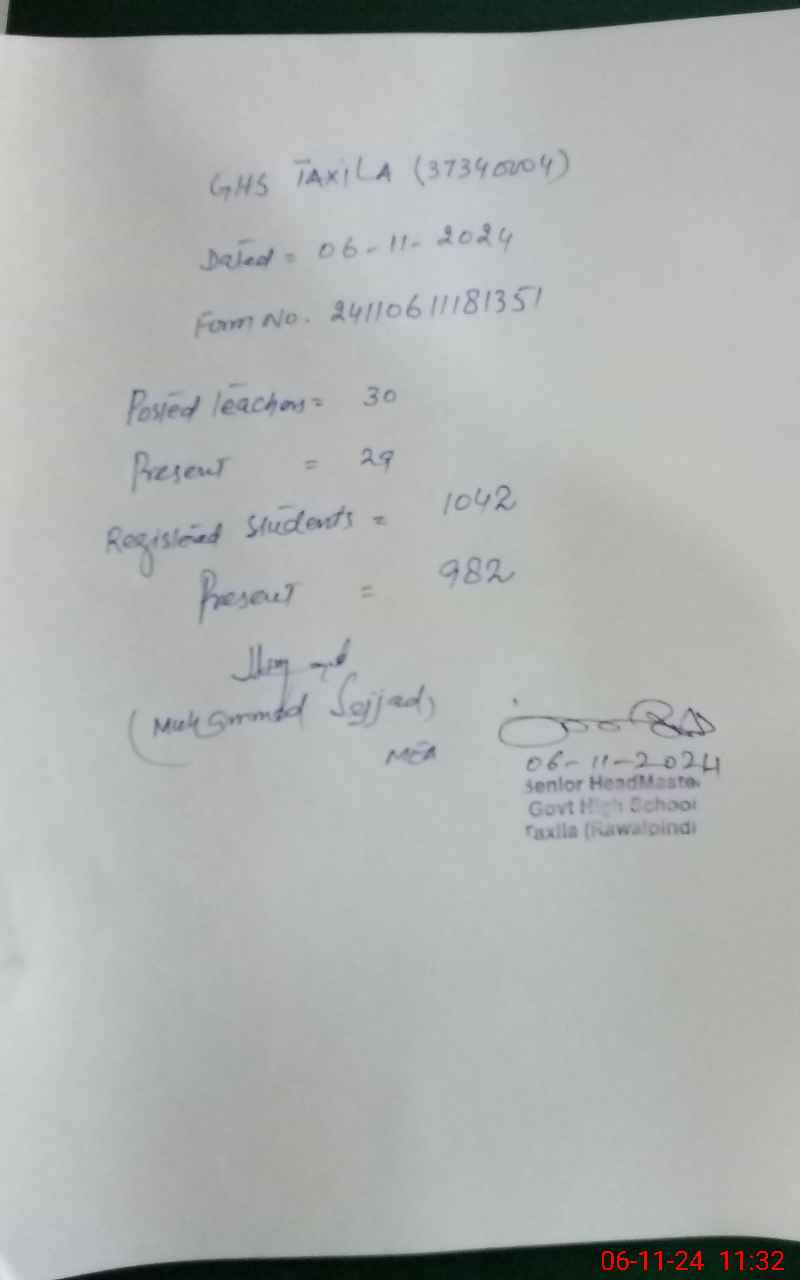 GHS TAXILA (37340204)
Dated = 06-11-2024
Form No. 24110611181351
Posted teachers = 30
Present = 29
Registered Students = 1042
Present = 982
(Muhammad Sajjad)
MEA
06-11-2024
Senior HeadMaster
Govt High School
Taxila (Rawalpindi)
06-11-24 11:32